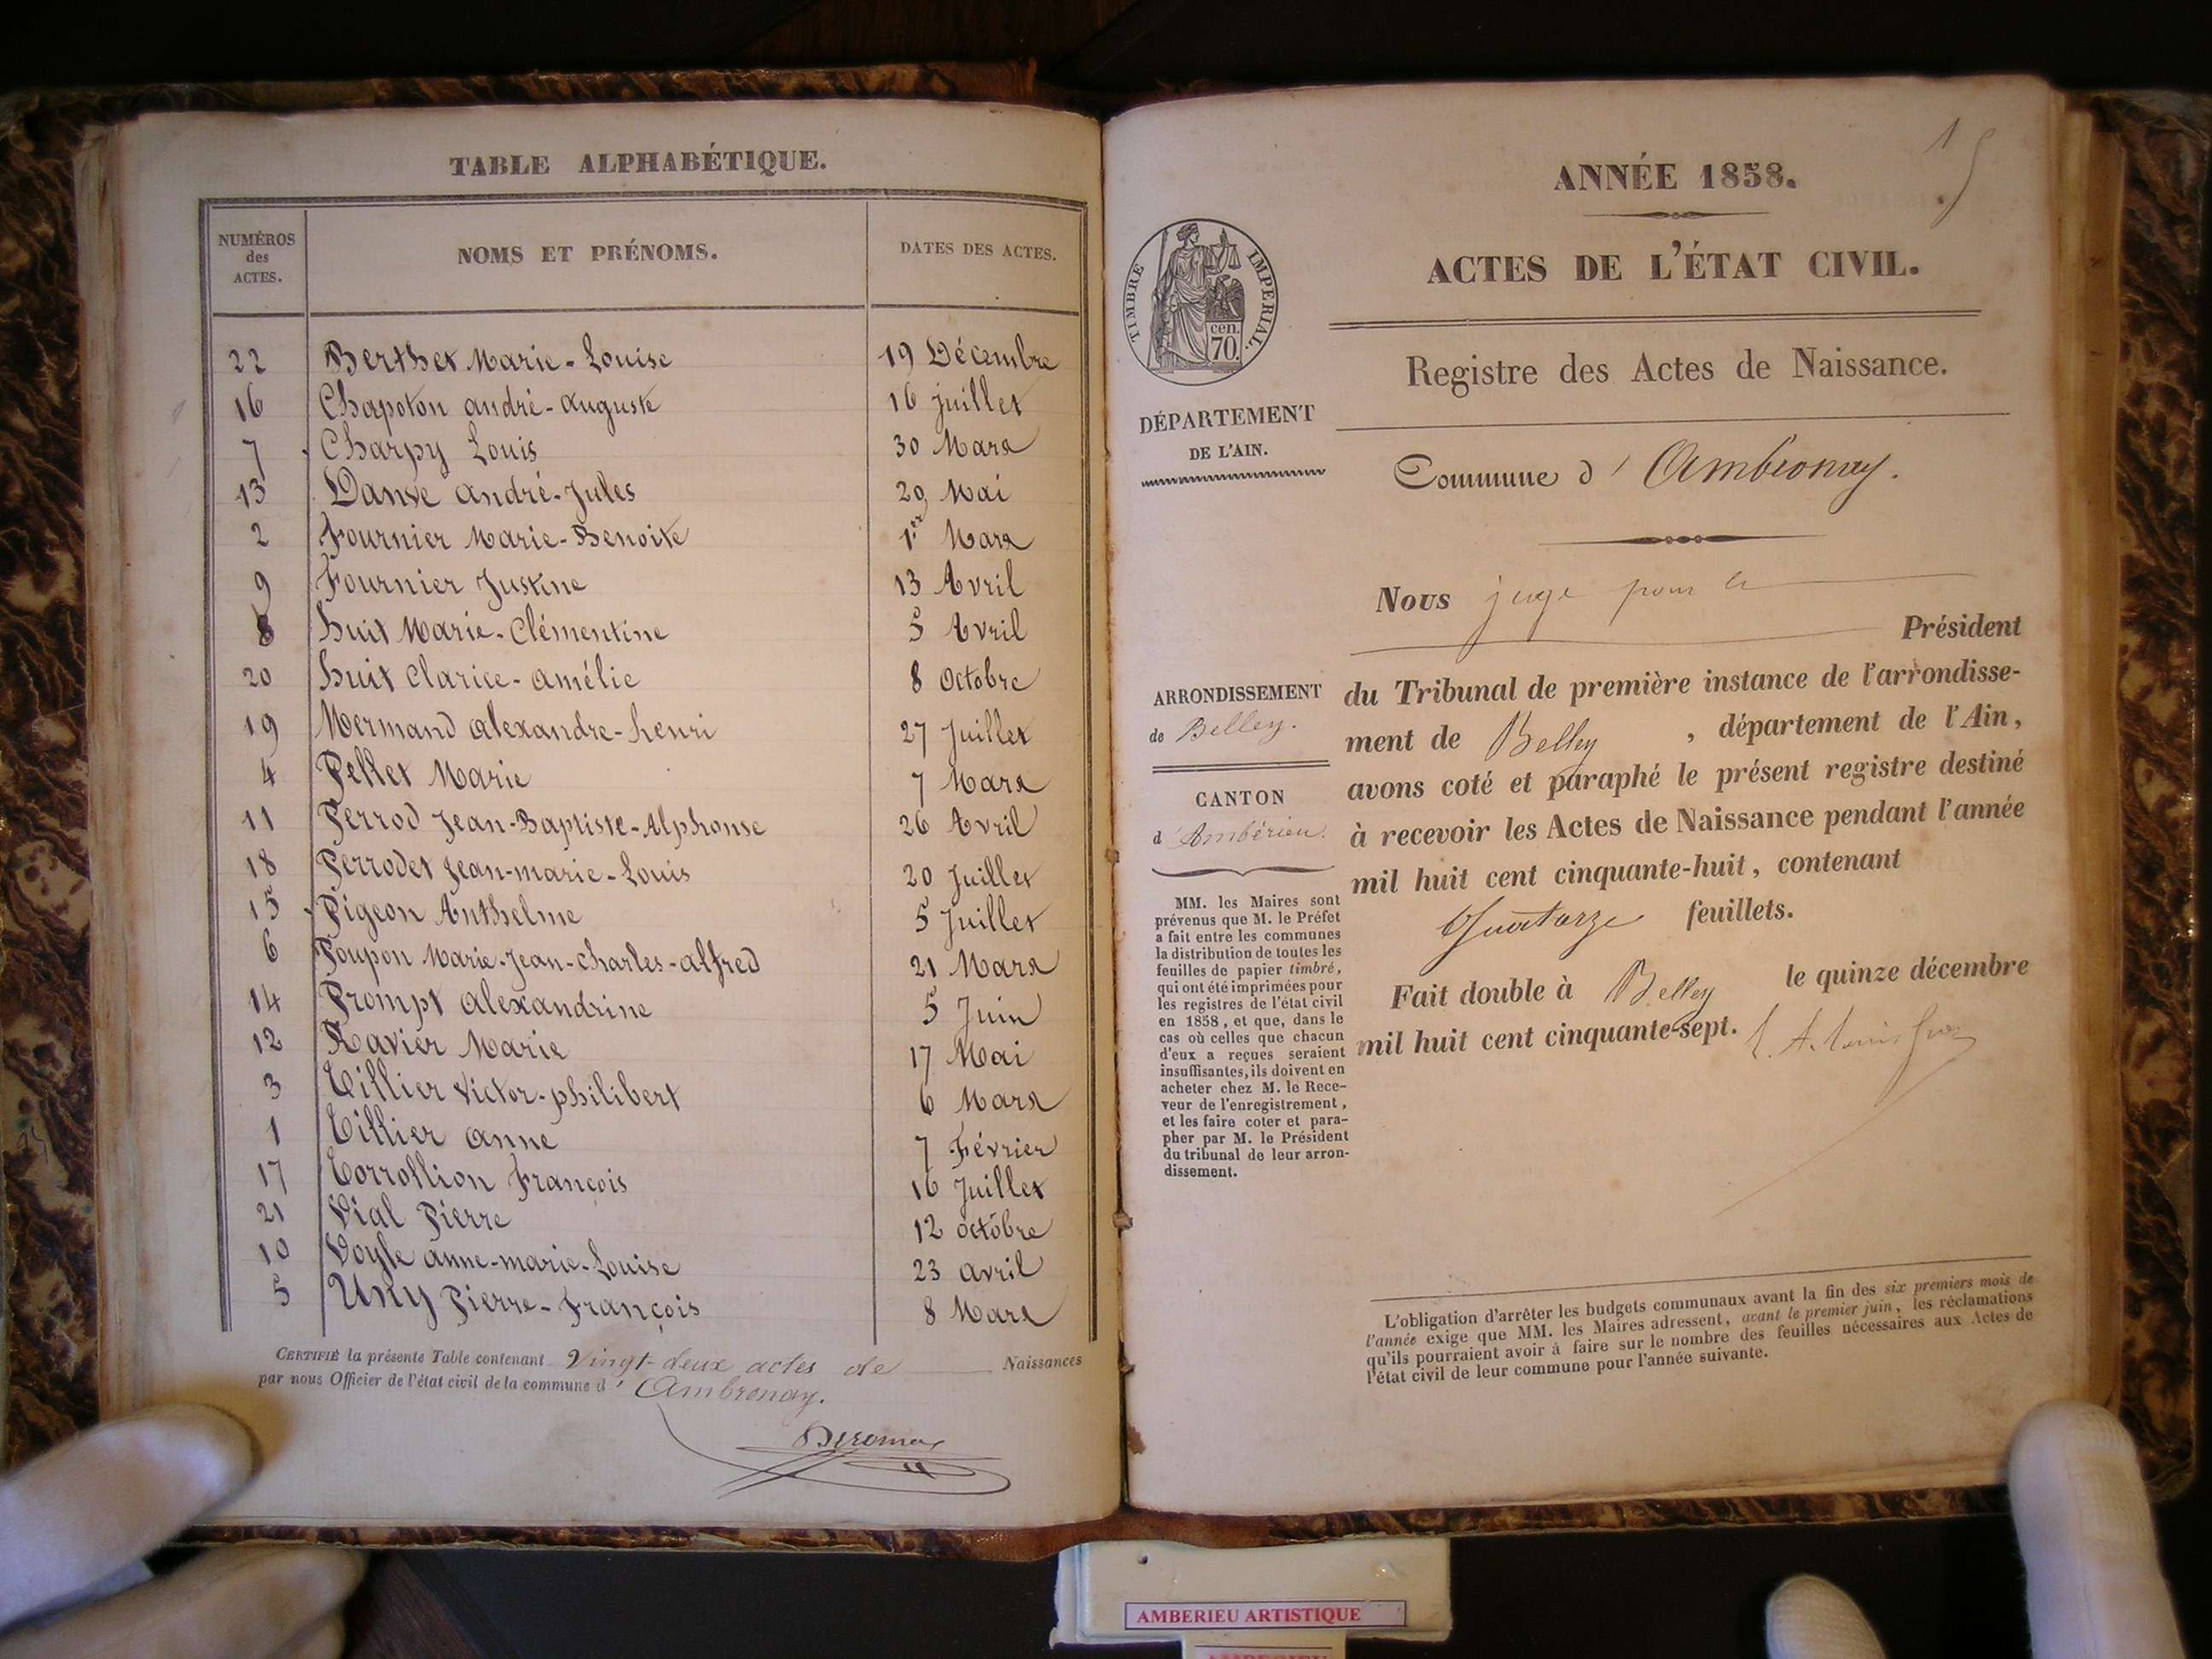 TABLE ALPHABÉTIQUE.
NUMÉROS des ACTES. NOMS ET PRÉNOMS. DATES DES ACTES.
22 Berthet Marie-Louise 19 Décembre
16 Chapoton andré-auguste 16 Juillet
7 Charpy Louis 30 Mars
13 Danve andré-Jules 29 Mai
2 Fournier Marie-Benoite 1er Mars
9 Fournier Justine 13 Avril
8 huit Marie-Clémentine 5 Avril
20 huit Clarice-amélie 8 Octobre
19 Mermand alexandre-henri 27 Juillet
4 Pellet Marie 7 Mars
11 Perrod Jean-Baptiste-Alphonse 26 Avril
18 Perrodet Jean-marie-Louis 20 Juillet
15 Pigeon Anthelme 5 Juillet
6 Poupon Marie-Jean-Charles-alfred 21 Mars
14 Prompt alexandrine 5 Juin
12 Ravier Marie 17 Mai
3 Tillier Victor-philibert 6 Mars
1 Tillier anne 7 Février
17 Torrollion François 16 Juillet
21 Vial Pierre 12 octobre
10 Voyle anne-marie-Louise 23 avril
5 Uny Pierre-François 8 Mars
CERTIFIÉ la présente Table contenant Vingt-deux actes de Naissances
par nous Officier de l'état civil de la commune d' Ambronay.
15
ANNÉE 1858.
ACTES DE L'ÉTAT CIVIL.
Registre des Actes de Naissance.
TIMBRE IMPERIAL
cen.
70.
DÉPARTEMENT
DE L'AIN.
Commune d' Ambronay.
Nous juge pour le
Président
du Tribunal de première instance de l'arrondisse-
ment de Belley, département de l'Ain,
avons coté et paraphé le présent registre destiné
à recevoir les Actes de Naissance pendant l'année
mil huit cent cinquante-huit, contenant
Quatorze feuillets.
Fait double à Belley le quinze décembre
mil huit cent cinquante-sept.
ARRONDISSEMENT
de Belley.
CANTON
d'Ambérieu.
MM. les Maires sont
prévenus que M. le Préfet
a fait entre les communes
la distribution de toutes les
feuilles de papier timbré,
qui ont été imprimées pour
les registres de l'état civil
en 1858, et que, dans le
cas où celles que chacun
d'eux a reçues seraient
insuffisantes, ils doivent en
acheter chez M. le Rece-
veur de l'enregistrement,
et les faire coter et para-
pher par M. le Président
du tribunal de leur arron-
dissement.
L'obligation d'arrêter les budgets communaux avant la fin des six premiers mois de
l'année exige que MM. les Maires adressent, avant le premier juin, les réclamations
qu'ils pourraient avoir à faire sur le nombre des feuilles nécessaires aux Actes de
l'état civil de leur commune pour l'année suivante.
AMBERIEU ARTISTIQUE